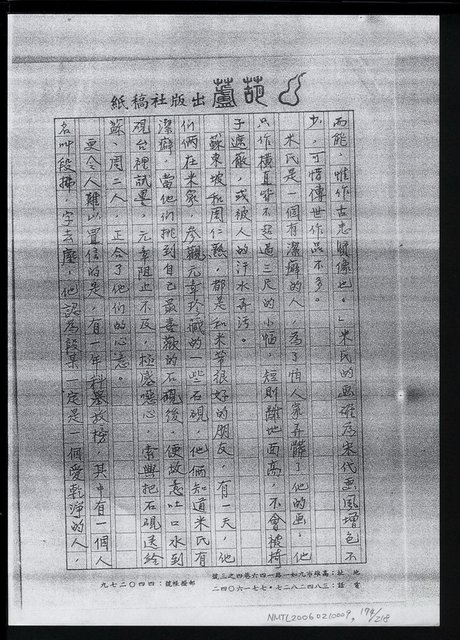 葫蘆出版社稿紙
而能,惟作古忠賢像也。」米氏的画確為宋代画風增色不
少,可惜傳世作品不多。
米氏是一個有潔癖的人,為了怕人家弄髒了他的画,他
只作橫直皆不超過三尺的小幅,短則離地面高,不會被椅
子遮蔽,或被人的汗水弄污。
蘇東坡和周仁熟,都是和米芾很好的朋友,有一天,他
們倆在米家,參觀元章珍藏的一些石硯,他倆知道米氏有
潔癖,當他們挑到自己最喜歡的石硯後,便故意吐口水到
硯台裡試墨,元章阻止不及,極感噁心,索興把石硯送給
蘇、周二人,正合了他們的心意。
更令人難以置信的是,有一年科舉放榜,其中有一個人
名叫段拂,字去塵,他認為段某一定是一個愛乾淨的人,
地址:高雄市九如一路一四六巷四之三號
電話:三八四二八二七・七七一六〇四二
郵撥帳號:四四〇二七九
NMTL20060210009, 194/218